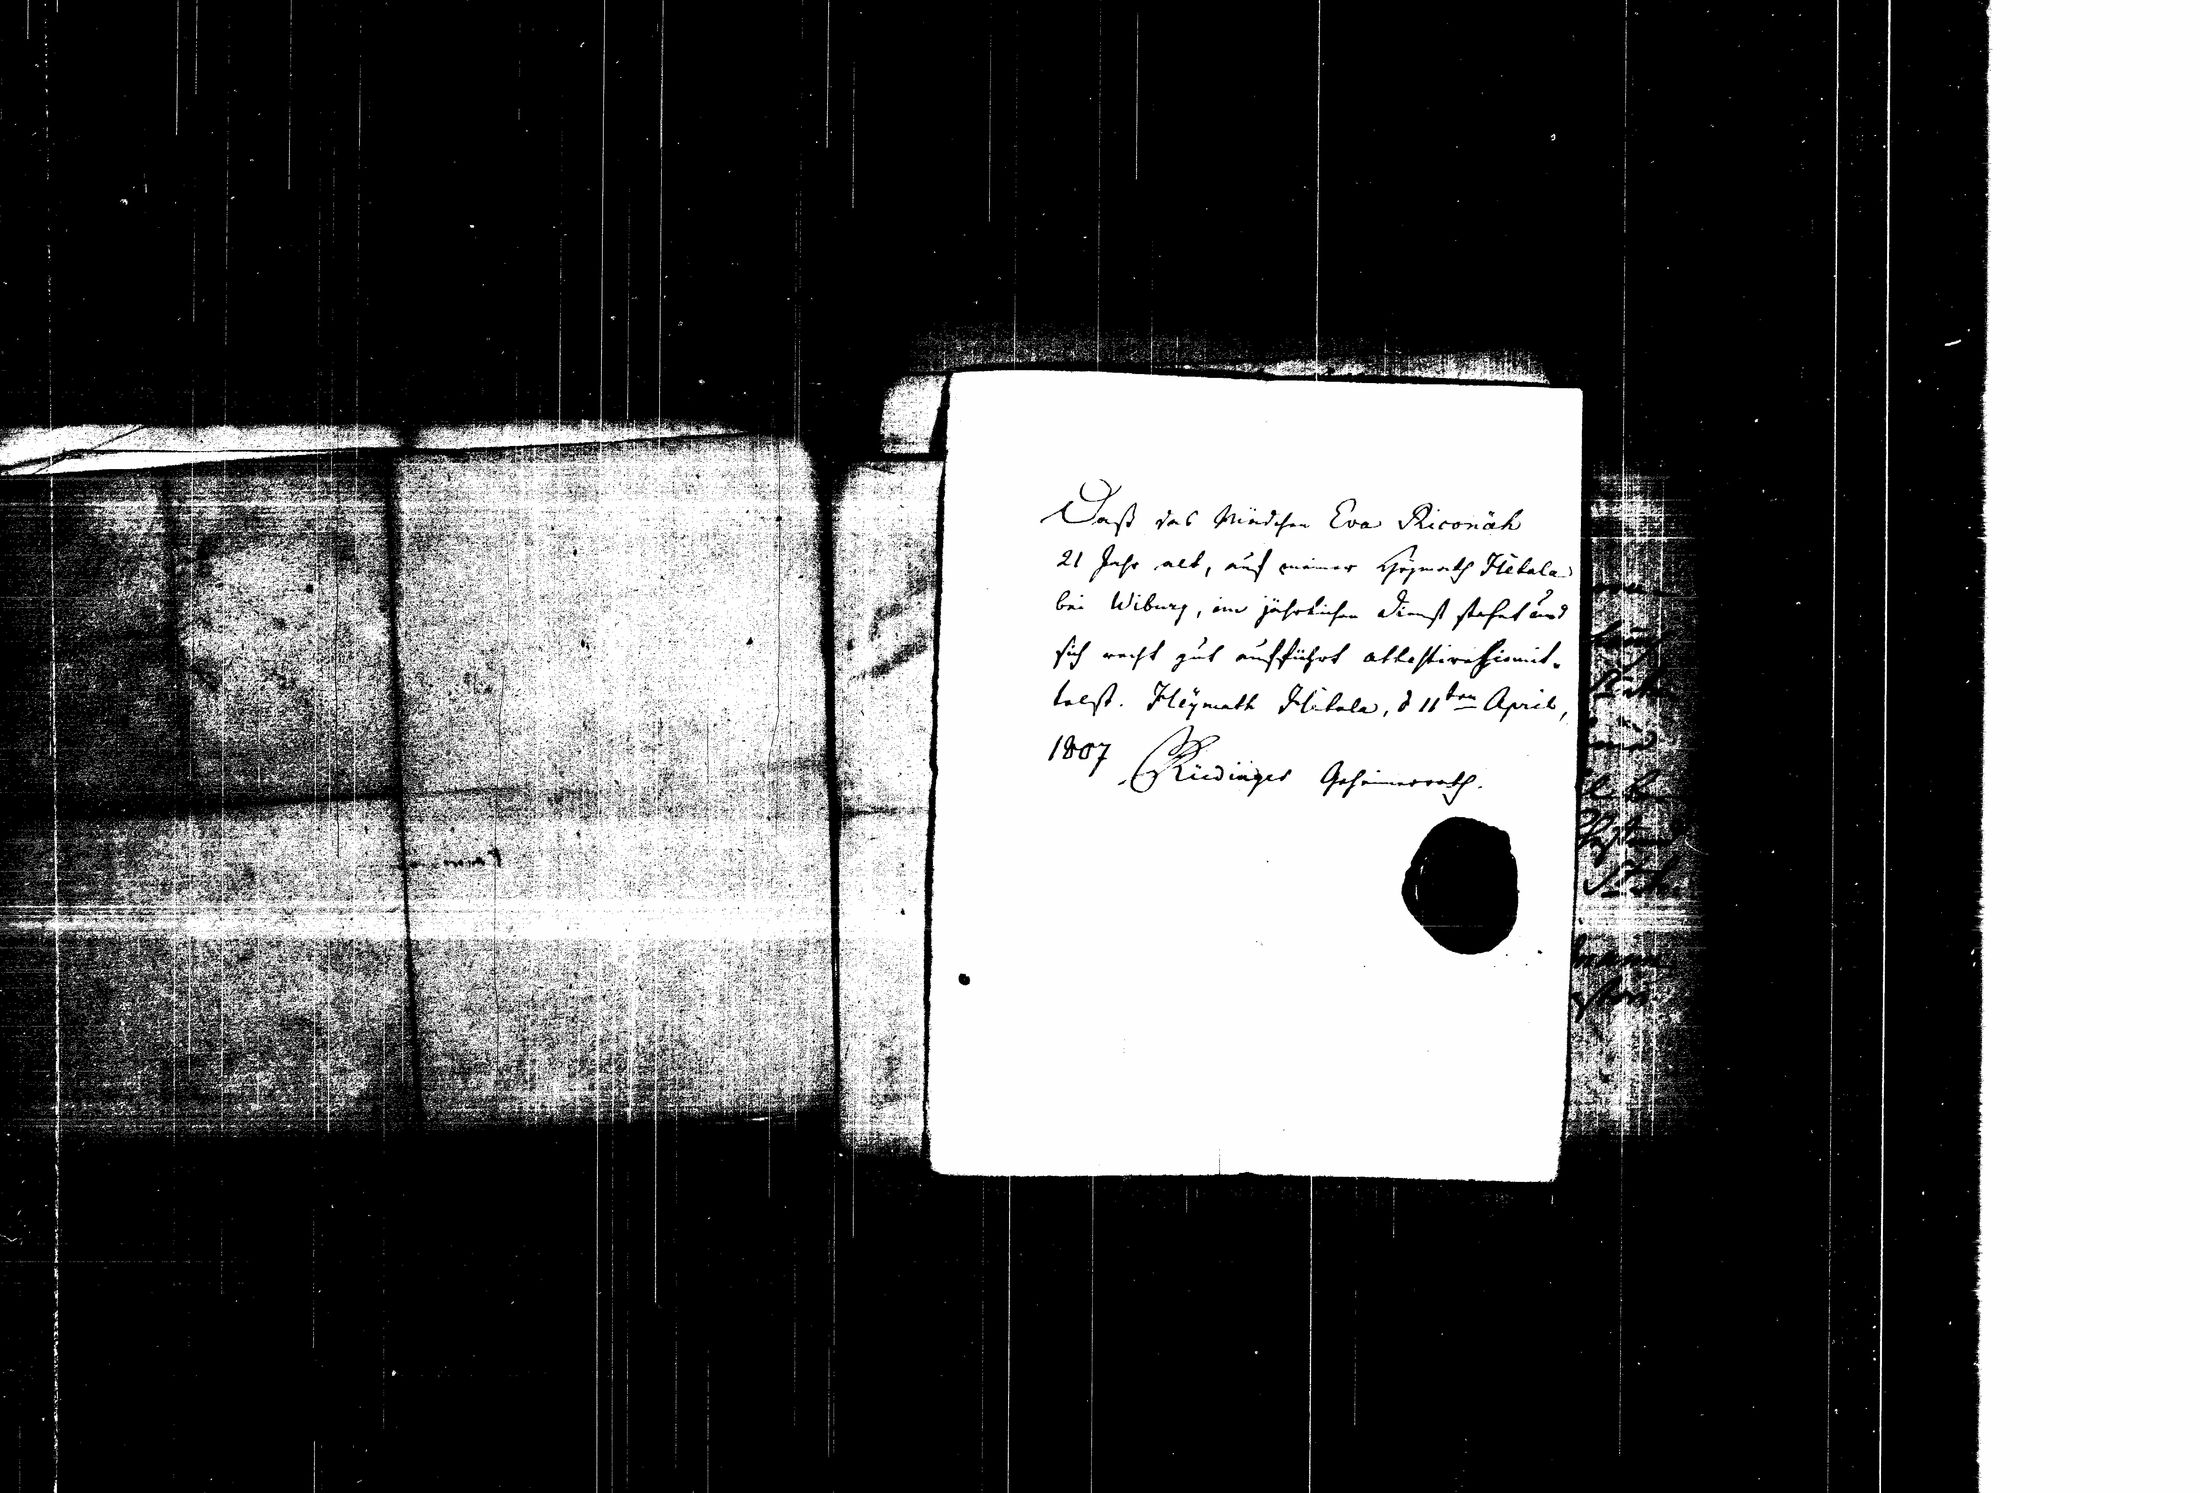 Daß das Mädchen Eva Riconäh
21 Jahr alt, auf meiner Heymath Hietala
bei Wiburg, im jährlichen Dienst stehet und
sich recht gut aufführt attestire hiermit-
telst. Heÿmath Hietala, d 11ten April,
1807
Rüdinger Geheimerrath.